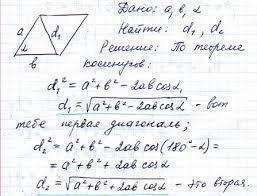 Дано: a, b, α
Найти: d₁, d₂
Решение: По теореме
косинусов:
a d₁ α b
d₁² = a² + b² - 2ab cosα
d₁ = √(a² + b² - 2ab cosα) - вот
тебе первая диагональ;
d₂² = a² + b² - 2ab cos(180° - α) =
= a² + b² + 2ab cosα
d₂ = √(a² + b² + 2ab cosα - это вторая.